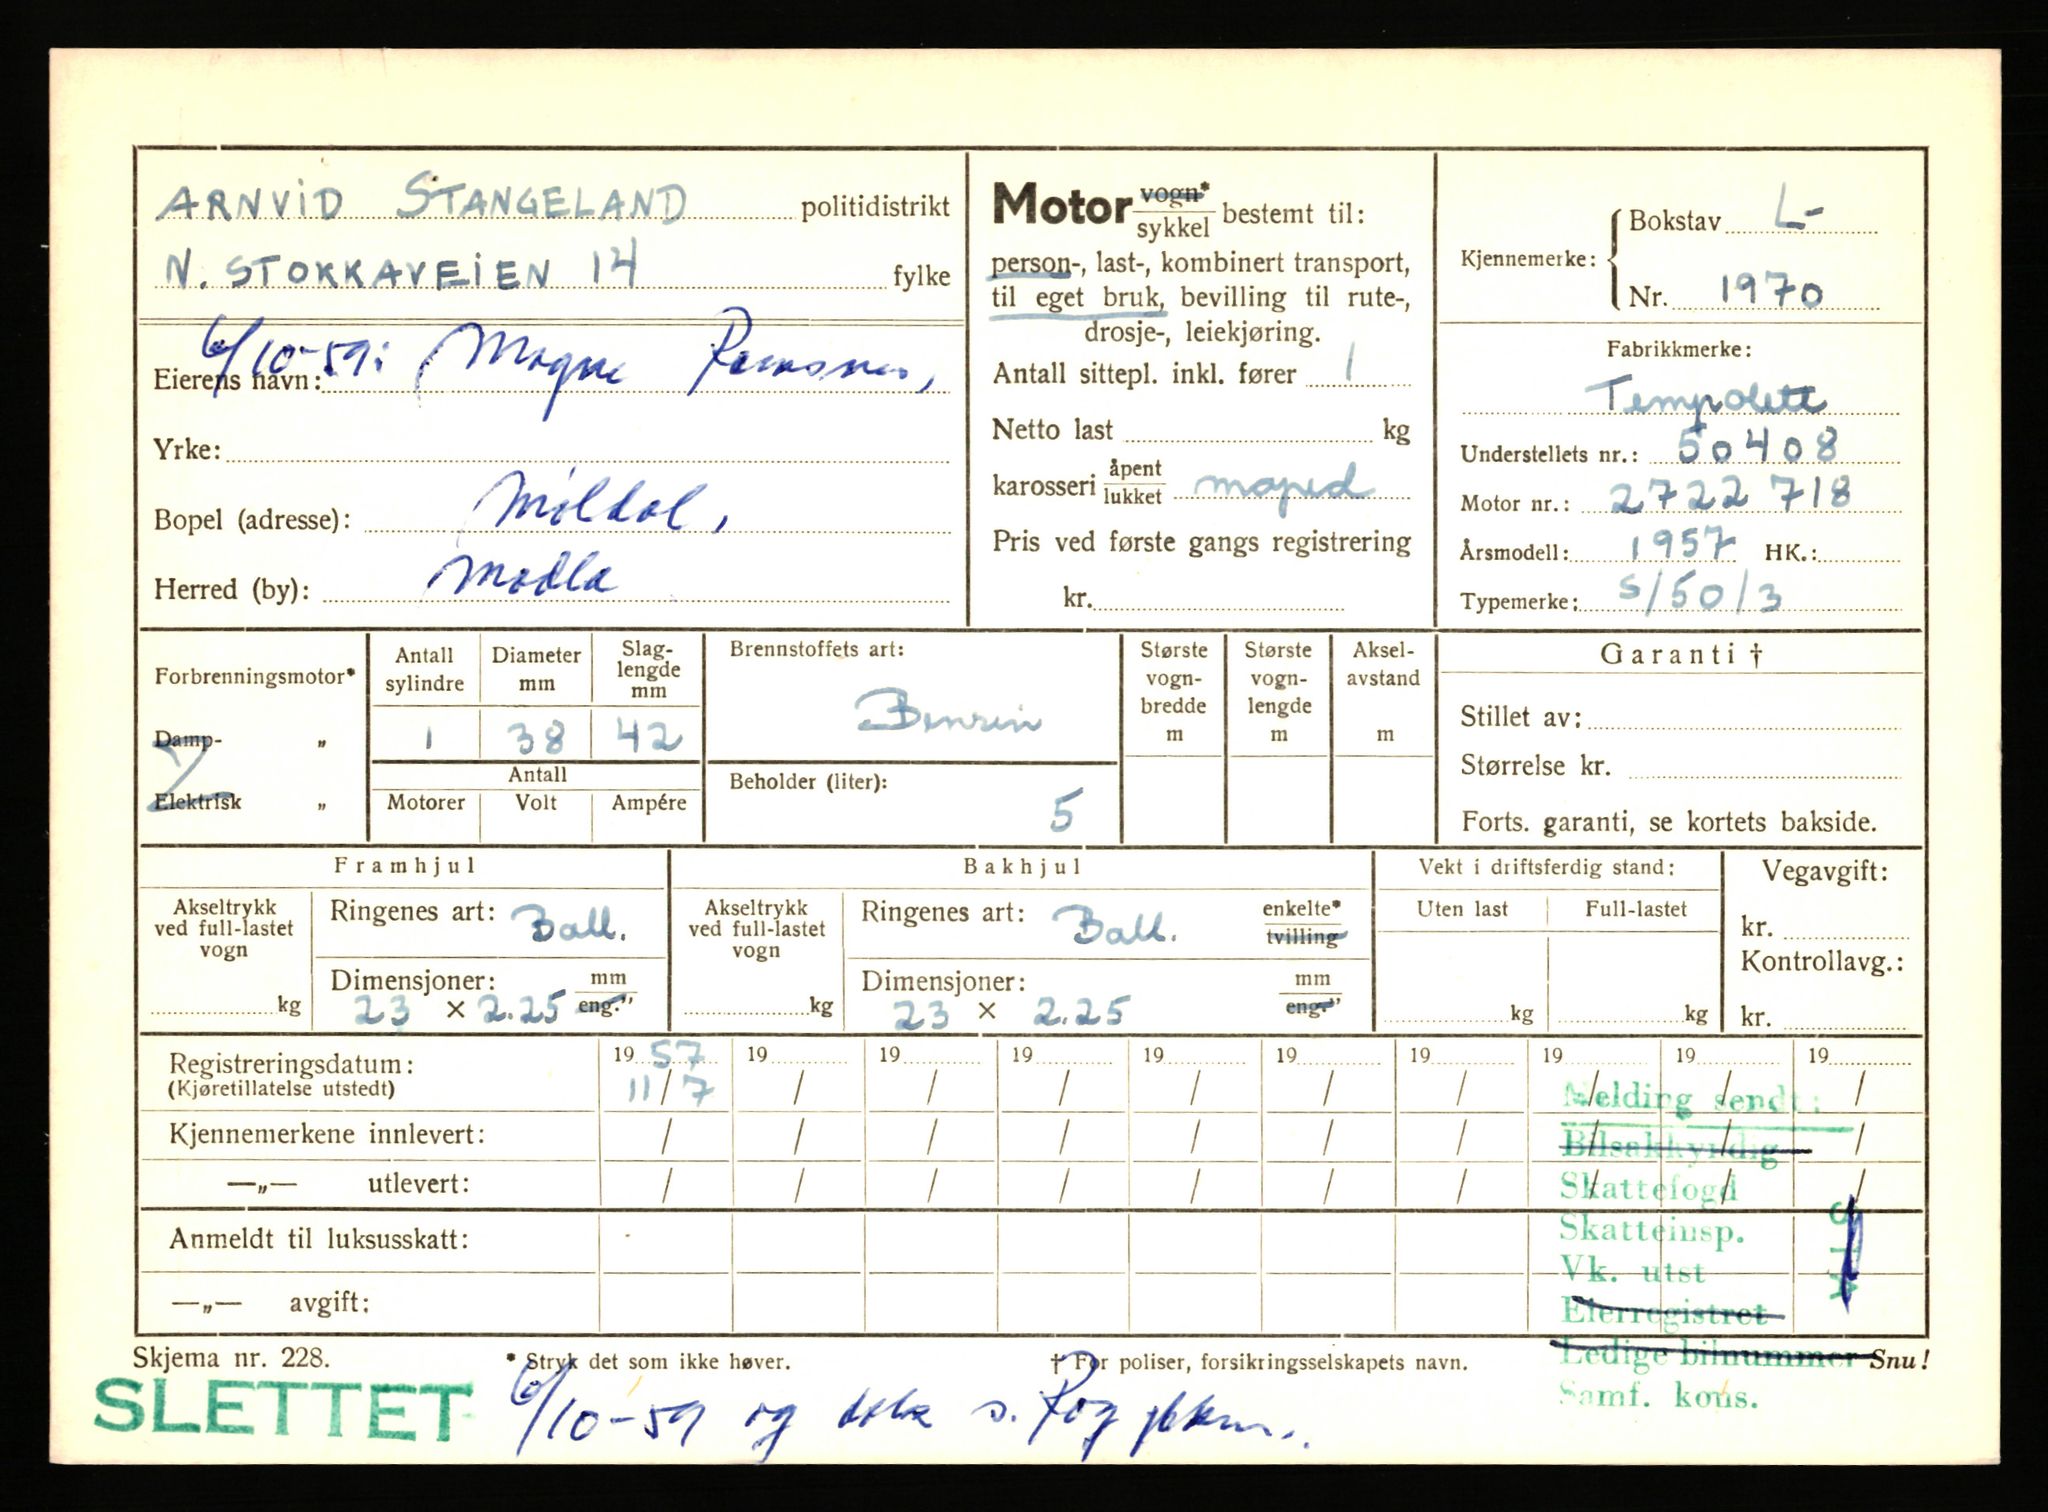 ARNVID STANGELAND politidistrikt
N. STOKKAVEIEN 14 fylke
6/10-59: Magne
Eierens navn:
Yrke:
Bopel (adresse): Møldal,
Herred (by): Madla
Motor vogn* / sykkel bestemt til:
person-, last-, kombinert transport,
til eget bruk, bevilling til rute-,
drosje-, leiekjøring.
Antall sittepl. inkl. fører 1
Netto last kg
karosseri åpent / lukket moped
Pris ved første gangs registrering
kr.
Kjennemerke: Bokstav L-
Nr. 1970
Fabrikkmerke:
Tempolett
Understellets nr.: 50408
Motor nr.: 2722 718
Årsmodell: 1957 HK.:
Typemerke: S/50/3
Forbrenningsmotor*
Damp- „
Elektrisk „
Antall sylindre 1
Diameter mm 38
Slag-lengde mm 42
Antall
Motorer Volt Ampére
Brennstoffets art:
Bensin
Beholder (liter):
5
Største vogn-bredde m
Største vogn-lengde m
Aksel-avstand m
Garanti †
Stillet av:
Størrelse kr.
Forts. garanti, se kortets bakside.
Framhjul
Akseltrykk ved full-lastet vogn
kg
Ringenes art: Ball.
Dimensjoner: mm
23 × 2.25 eng."
Bakhjul
Akseltrykk ved full-lastet vogn
kg
Ringenes art: Ball. enkelte* / tvilling
Dimensjoner: mm
23 × 2.25 eng."
Vekt i driftsferdig stand:
Uten last Full-lastet
kg kg
Vegavgift:
kr.
Kontrollavg.:
kr.
Registreringsdatum: 19 57 19 19 19 19 19 19 19 19 19
(Kjøretillatelse utstedt) 11/7 / / / / / / / / /
Kjennemerkene innlevert: / / / / / / / / / /
—„— utlevert: / / / / / / / / / /
Anmeldt til luksusskatt:
—„— avgift:
Melding sendt:
Bilsakkyndig
Skattefogd
Skatteinsp.
Vk. utst
Eierregistret
Ledige bilnummer
Samf. kons.
Skjema nr. 228. * Stryk det som ikke høver. † For poliser, forsikringsselskapets navn. Snu!
SLETTET
6/10-59 og